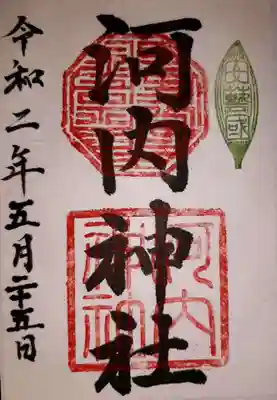 安藝國
河内神社
河内神社
令和二年五月二十五日